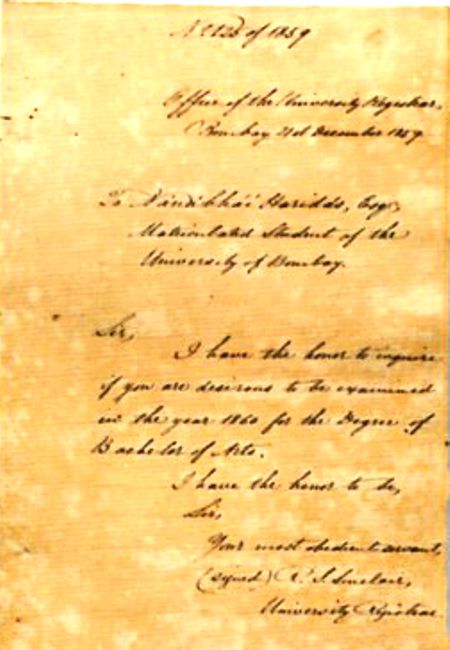 No 125 of 1859
Office of the University Registrar,
Bombay 21st December 1859
To Nánábhái Haridás, Esqr,
Matriculated Student of the
University of Bombay.
Sir,
I have the honor to inquire
if you are desirous to be examined
in the year 1860 for the Degree of
Bachelor of Arts.
I have the honor to be,
Sir,
Your most obedient servant,
(signed) R. S. Sinclair,
University Registrar